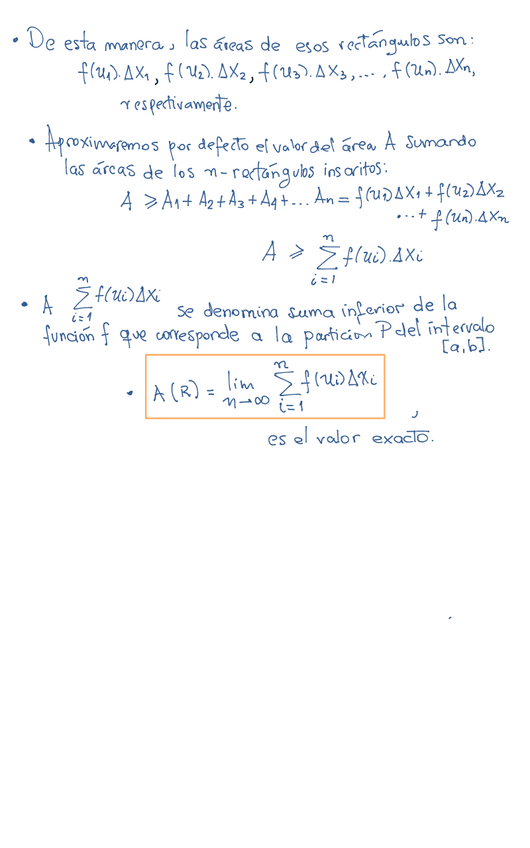 • De esta manera, las áreas de esos rectángulos son:
f(u1).ΔX1, f(u2).ΔX2, f(u3).ΔX3, ... , f(un).ΔXn,
respectivamente.
• Aproximaremos por defecto el valor del área A sumando
las áreas de los n-rectángulos inscritos:
A ⩾ A1 + A2 + A3 + A4 + ... An = f(u1)ΔX1 + f(u2)ΔX2
...+ f(un).ΔXn
A ⩾ n∑i=1 f(ui).ΔXi
• A n∑i=1 f(ui)ΔXi se denomina suma inferior de la
función f que corresponde a la particion P del intervalo
[a,b].
• A(R) = lim n→∞ n∑i=1 f(ui)ΔXi ,
es el valor exacto.